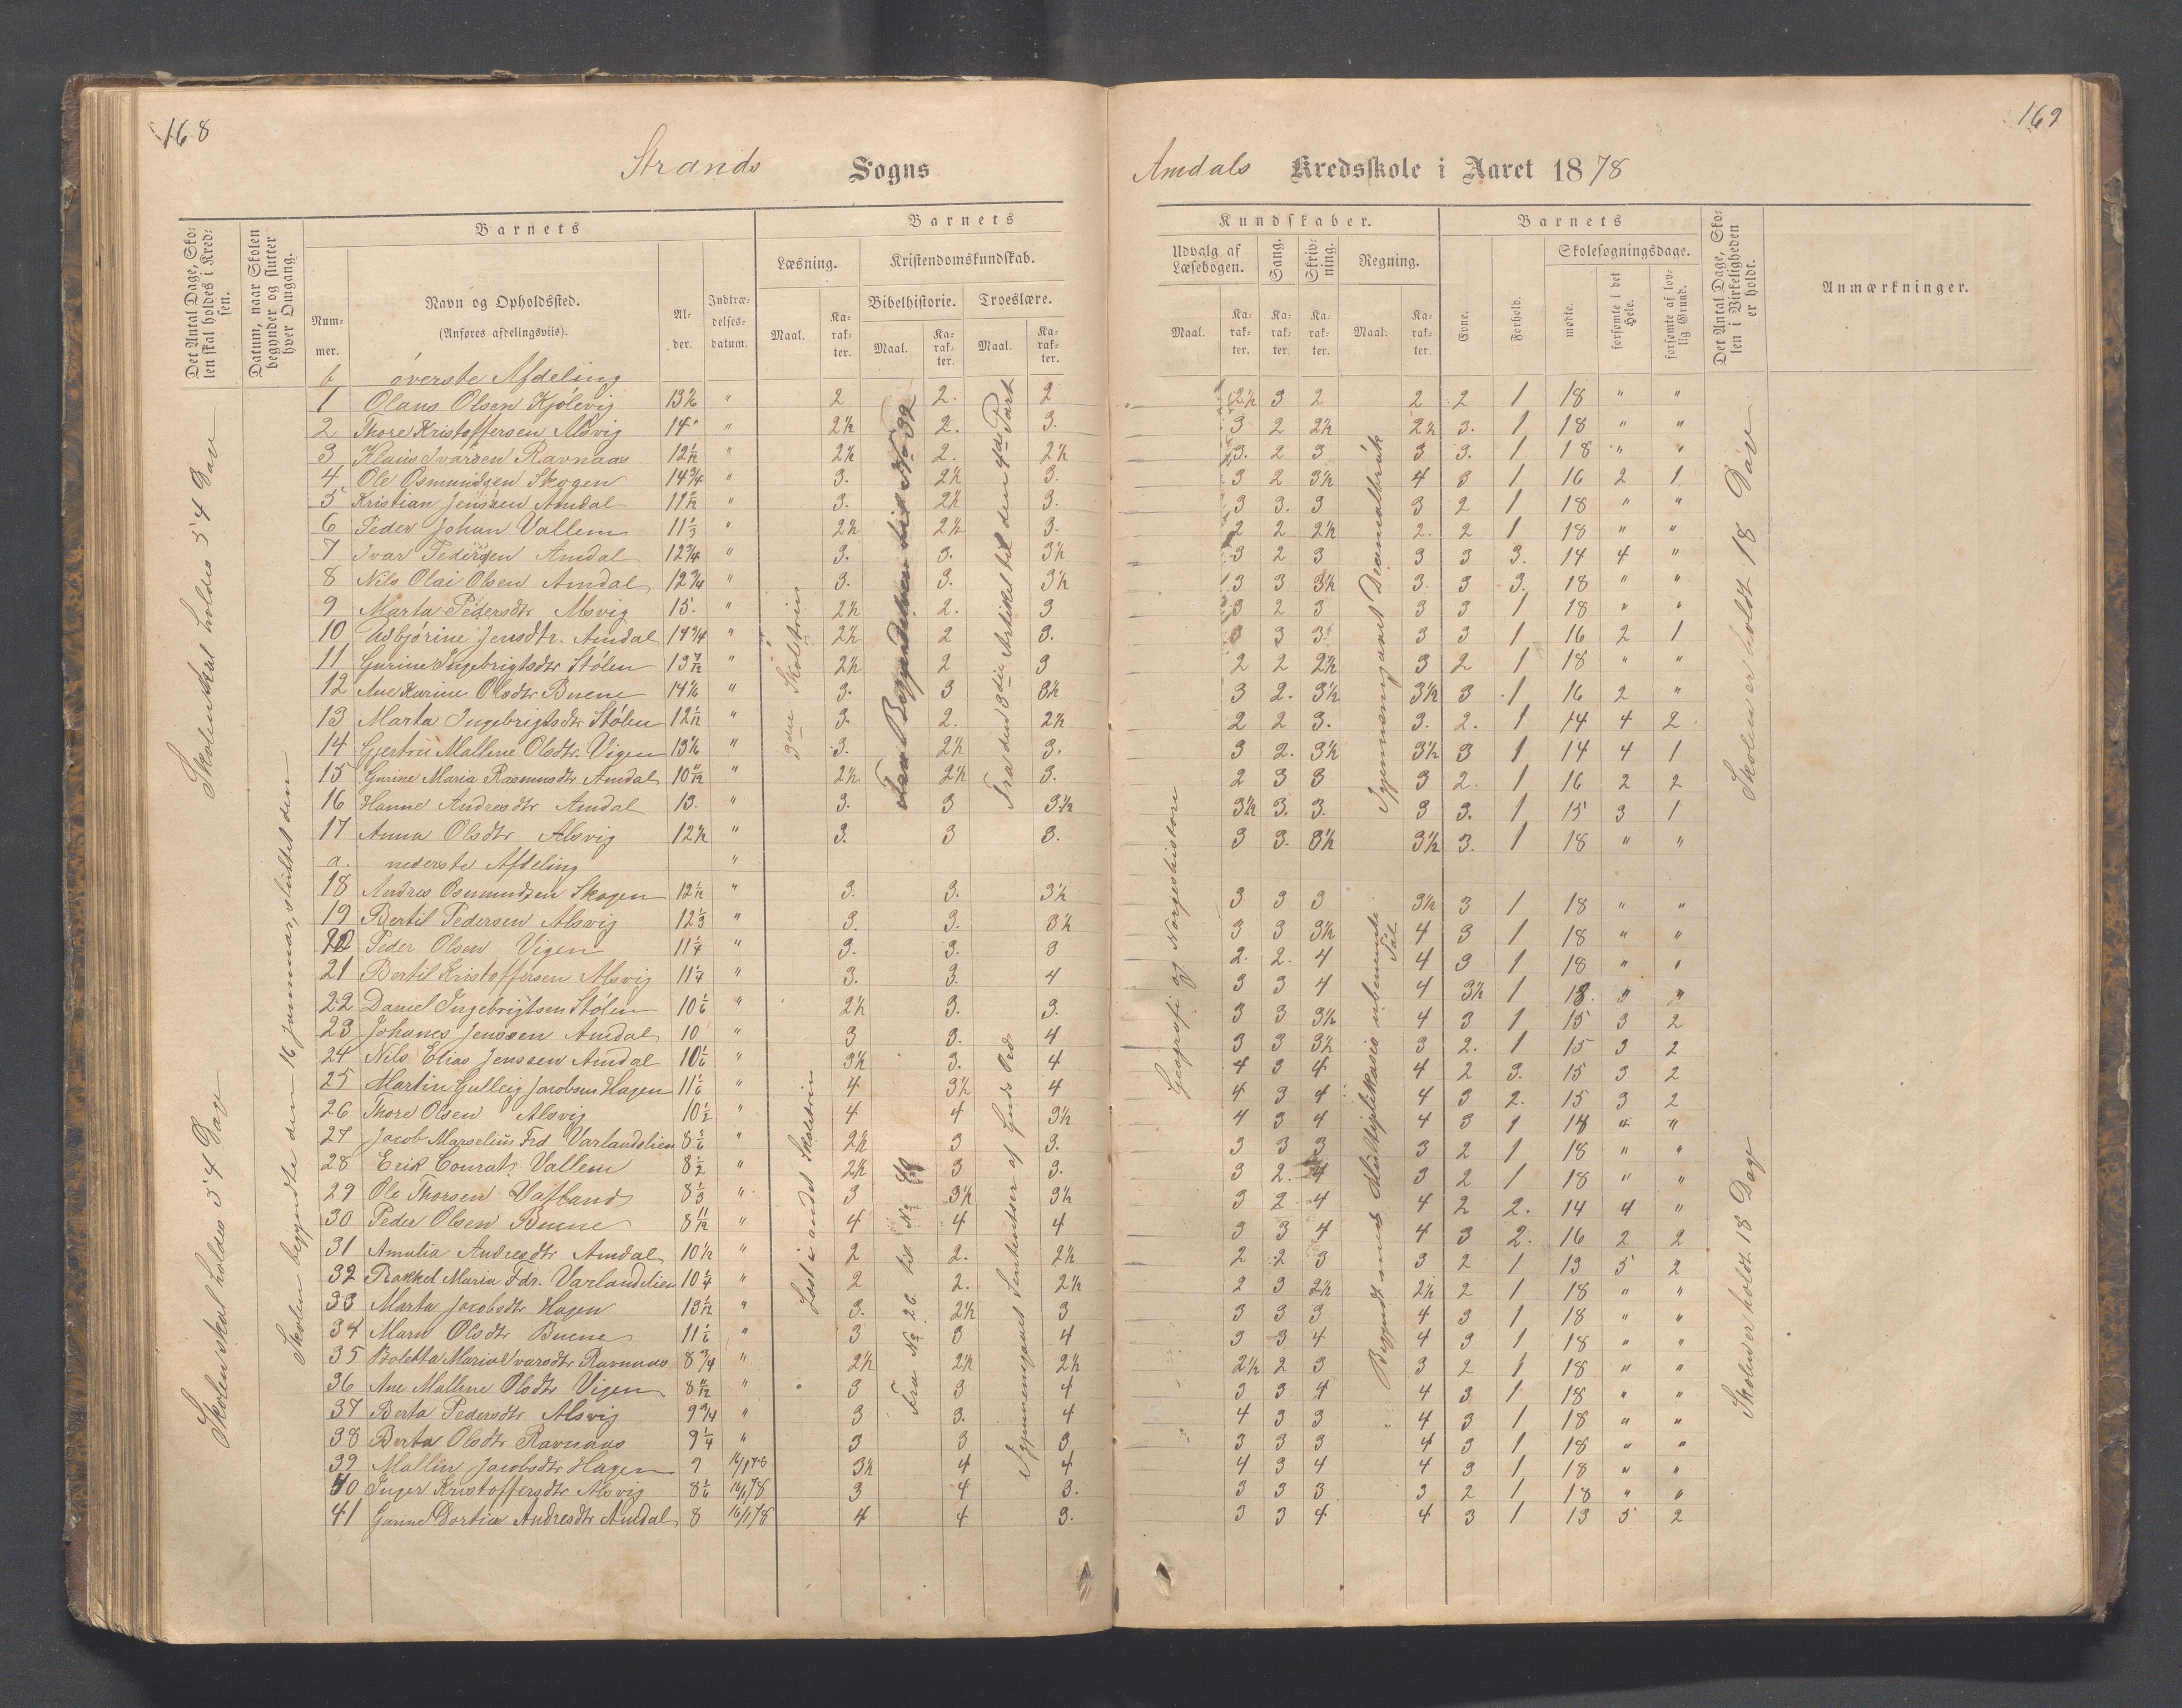 168
Strands Sogns
Det Antal Dage, Skolen skal holdes i Kredsen.
Datum, naar Skolen begynder og slutter hver Omgang.
Barnets
Barnets
Nummer.
Navn og Opholdssted.
(Anføres afdelingsviis).
Alder.
Indtrædelsesdatum.
Læsning.
Kristendomskundskab.
Bibelhistorie.
Troeslære.
Maal.
Karakter.
Maal.
Karakter.
Maal.
Karakter.
Skolen skal holdes 54 Dage
Skolen skal holdes 54 Dage
3die Skoletrin
Læst i andet Skoletrin
Fra No 26 til No 40
Fra den 3die Artikel til den 4de Part
b øverste Afdeling
1 Olaus Olsen Kjölevig 13 1/6 " 2 2. 2
2 Thore Kristoffersen Alsvig 14 " " 2½ 2. 3.
3 Klaus Ivarsen Ravnaas 12 1/12 " 2½ 2. 2½
4 Ole Osmundsen Skogen 14 3/4 " 3. 2½ 3.
5 Kristian Jenssen Amdal " 3. 2½ 3.
6 Peder Johan Vallem 11 1/3 " 2½ 2½ 3.
7 Ivar Pedersen Amdal 12 3/4 " 3. 3. 3½
8 Nils Olai Olsen Amdal 12 3/4 " 3. 3. 3½
9 Marta Pedersdtr Alsvig 15. " 2½ 2. 3
10 Asbjörine Jensdtr. Amdal 14 3/4 " 2½ 2 3.
11 Gurine Ingebrigtsdtr Stölen 13 7/12 " 2½ 2 3
12 Ane Karine Olsdtr Buene 14 1/6 " 3. 3 3½
13 Marta Ingebrigtsdtr Stölen 12 1/12 " 3. 2. 2½
14 Gjertru Mallene Olsdtr. Vigen 13 1/6 " 3. 2½ 3.
15 Gurine Maria Rasmusdtr Amdal 10 11/12 " 2½ 2½ 3.
16 Hanne Andresdtr Amdal 13. " 3. 3 3½
17 Anna Olsdtr Alsvig 12½ " 3. 3 3.
a. nederste Afdeling "
18 Andres Osmundsen Skogen 12 1/12 " 3. 3. 3½
19 Bertil Pedersen Alsvig 12 1/3 " 3. 3. 3½
20 Peder Olsen Vigen 11 1/4 " 3. 3. 3
21 Bertil Kristoffersen Alsvig 11 1/4 " 3. 3. 4
22 Daniel Ingebrigtsen Stölen 10 1/6 " 2½ 3. 3.
23 Johanes Jenssen Amdal 10 " 3 3. 4
24 Nils Elias Jenssen Amdal 10 1/6 " 3½ 3. 4
25 Martin Gulleig Jacobsen Hagen 11 1/6 " 4 3½ 4
26 Thore Olsen Alsvig 10 1/2 " 4 4 3½
27 Jacob Marselius Frd Varlandslien 8 5/6 " 2½ 3 3.
28 Erik Conrat Vallem 8 1/2 " 2½ 3 3.
29 Ole Thorsen 8 1/3 " 3 3½ 3½
30 Peder Olsen Buene 8 11/12 " 4 4 4
31 Amalia Andresdtr Amdal 10½ " 2 2. 2½
32 Rakkel Maria Fdr. Varlandslien 10 1/4 " 2 2. 2½
33 Marta Jacobsdtr Hagen 13 1/12 " 3. 2½ 3
34 Marn Olsdtr Buene 11 1/6 " 3 3 4
35 Boletta Maria Ivarsdtr Ravnaas 8 3/4 " 2½ 2½ 2½
36 Ane Mallene Olsdtr Vigen 8 11/12 " 3 3 4
37 Berta Pedersdtr Alsvig 9 3/4 " 3 3. 4
38 Berta Olsdtr Ravnaas 9 1/4 " 3 3 3
39 Mallin Jacobsdtr Hagen 9 16/1 78 3½ 4 4
40 Inger Kristoffersdtr Alsvig 8 1/6 16/1 78 3 4 3.
41 Gurine Dortia Andresdtr Amdal 8 16/1 78 4 4 3.
169
Amdals Kredsskole i Aaret 1878
Kundskaber.
Barnets
Udvalg af Læsebogen.
Sang.
Skrivning.
Regning.
Evne.
Forhold.
Skolesøgningsdage.
mødte.
forsømte i det Hele.
forsømte af lovlig Grund.
Det Antal Dage, Skolen i Virkeligheden er holdt.
Anmærkninger.
Maal.
Karakter.
Karakter.
Karakter.
Maal.
Karakter.
Geografi og Norgeshistorie
Igjennemgaaet Decimalbrøk
Skolen er holdt 18 Dage
Skolen er holdt 18 Dage
2½ 3 2 2 2 1 18 " "
3 2 2½ 2½ 3. 1 18 " "
3. 2 3 3 3. 1 18 " "
3 2 3½ 4 3 1 16 2 1
3 3. 3 3 2 1 18 " "
2 2 2½ 2. 2 1 18 " "
3 2 3 3 3 3. 14 4 "
3 3 3½ 3. 3 3. 18 " "
3 2 3 3 3 1 18 " "
3 3 3. 3 3 1 16 2 1
2 2 2½ 3 2 1 18 " "
3 2. 3½ 3½ 3 1 16 2 "
2 2 3. 3. 2. 1 14 4 2
3 2. 3½ 3½ 3 1 14 4 1
2 3 3 3 2. 1 16 2 2
3½ 3. 3. 3 3. 1 15 3 1
3 3. 3½ 3½ 3. 1 18 " "
3 3 3 3½ 3 1 18 " "
3 3 3½ 4 3 1 18 " "
2. 2. 4 4 3 1 18 " "
3 3 4 4 3½ 1 18. " "
3 3 3½ 4 3 1 15 3 2
3 3 3½ 3 2. 1 15 3 2
4 3 4 4 2 3. 15 3 2
4 3 4 4 3 2. 15 3 2
4 3 4 4 3 1 14 4 "
3 3 3 3 2 1 18 " "
3 2. 4 3 2 1 18 " "
3 2 4 4 2 2. 14 4 "
3 3 4 4 3 2. 16 2 2
2 2 3 3 2 1 13 5 2
2 3 2½ 2½ 2 1 18 " "
3 3 3 4 3 1 18 " "
3 3 4 4 3 1 18 " "
2½ 2 3 3 2 1 18 " "
3 3 4 4 3 1 18 " "
4 3 3 4 3 1 18 " "
3 3 3 4 3 1 18 " "
4 3 4 4 3 1 18 " "
3 3 3 3 2 1 18 " "
3 3 4 4 3 1 13 5 2